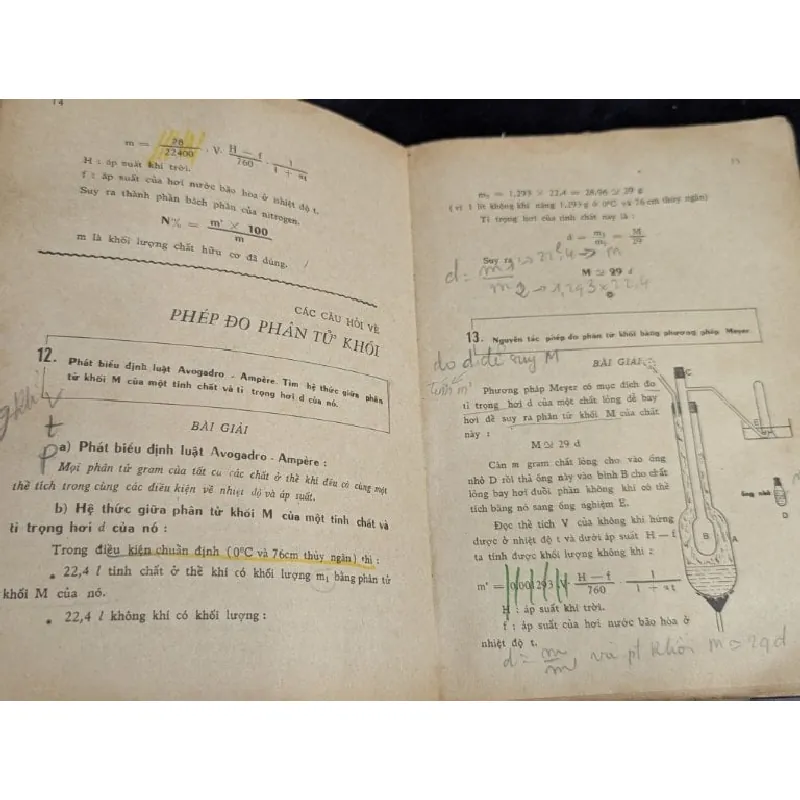 14
m = 28/22400 · V · H — f/760 · 1/1 + αt
H : áp suất khí trời.
f : áp suất của hơi nước bão hòa ở nhiệt độ t.
Suy ra thành phần bách phân của nitrogen.
N% = m' × 100/m
m là khối lượng chất hữu cơ đã dùng.
CÁC CÂU HỎI VỀ
PHÉP ĐO PHÂN TỬ KHỐI
12. Phát biểu định luật Avogadro - Ampère. Tìm hệ thức giữa phân
tử khối M của một tinh chất và tỉ trọng hơi d của nó.
BÀI GIẢI
V
t
P
a) Phát biểu định luật Avogadro - Ampère :
Mọi phân tử gram của tất cả các chất ở thể khí đều có cùng một
thể tích trong cùng các điều kiện về nhiệt độ và áp suất.
b) Hệ thức giữa phân tử khối M của một tinh chất và
tỉ trọng hơi d của nó :
Trong điều kiện chuẩn định (0°C và 76cm thủy ngân) thì :
• 22,4 l tinh chất ở thể khí có khối lượng m₁ bằng phân tử
khối M của nó.
• 22,4 l không khí có khối lượng :
15
m₂ = 1,293 × 22,4 = 28,96 ≃ 29 g
(vì 1 lít không khí nặng 1,293 g ở 0°C và 76 cm thủy ngân)
Tỉ trọng hơi của tinh chất này là :
d = m₁/m₂ = M/29
Suy ra :
M ≃ 29 d
d = m1/m2 → 22,4 → M
→ 1,293 × 22,4
13. Nguyên tắc phép đo phân tử khối bằng phương pháp Meyer.
đo d để suy M
tính m'
BÀI GIẢI
Phương pháp Meyer có mục đích đo
tỉ trọng hơi d của một chất lỏng dễ bay
hơi để suy ra phân tử khối M của chất
này :
M ≃ 29 d
Cân m gram chất lỏng cho vào ống
nhỏ D rồi thả ống này vào bình B cho chất
lỏng bay hơi đuổi phần không khí có thể
tích bằng nó sang ống nghiệm E.
Đọc thể tích V của không khí hứng
được ở nhiệt độ t và dưới áp suất H — f
ta tính được khối lượng không khí :
m' = 0,001293 V · H — f/760 · 1/1 + αt
H : áp suất khí trời.
f : áp suất của hơi nước bão hòa ở
nhiệt độ t.
C
E
ống nhỏ
D
B
A
d = m/m' và pt khối M = 29d